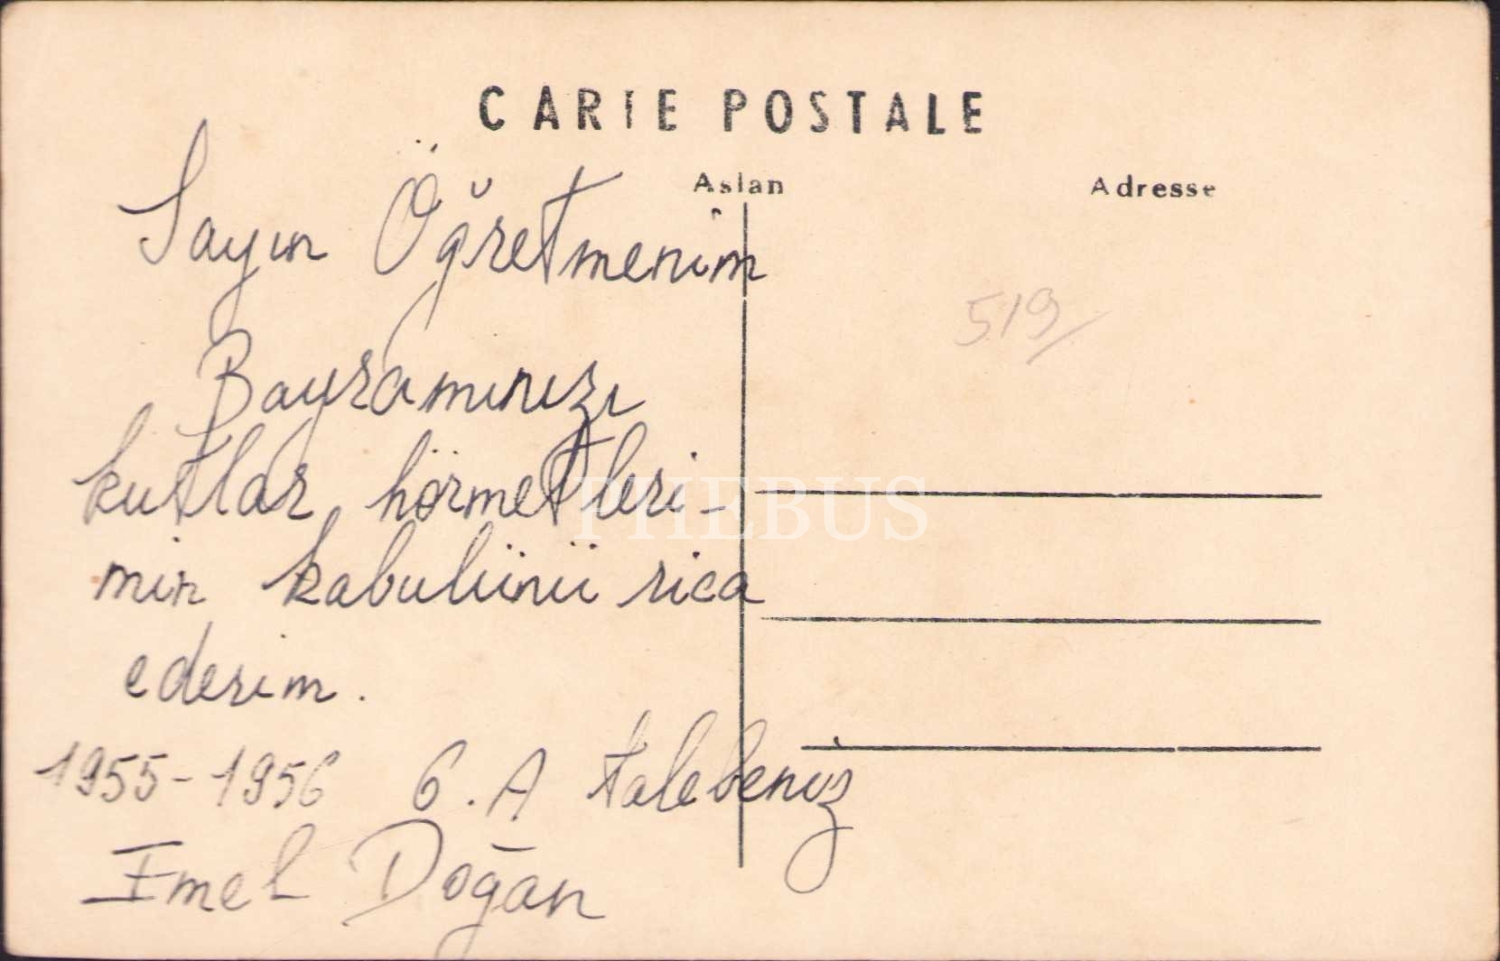 CARTE POSTALE
Aslan
Adresse
Sayın Öğretmenim
519/
Bayramınızı
kutlar hörmetleri-
min kabulünü rica
ederim.
1955-1956 6.A talebeniz
Emel Doğan
PHEBUS